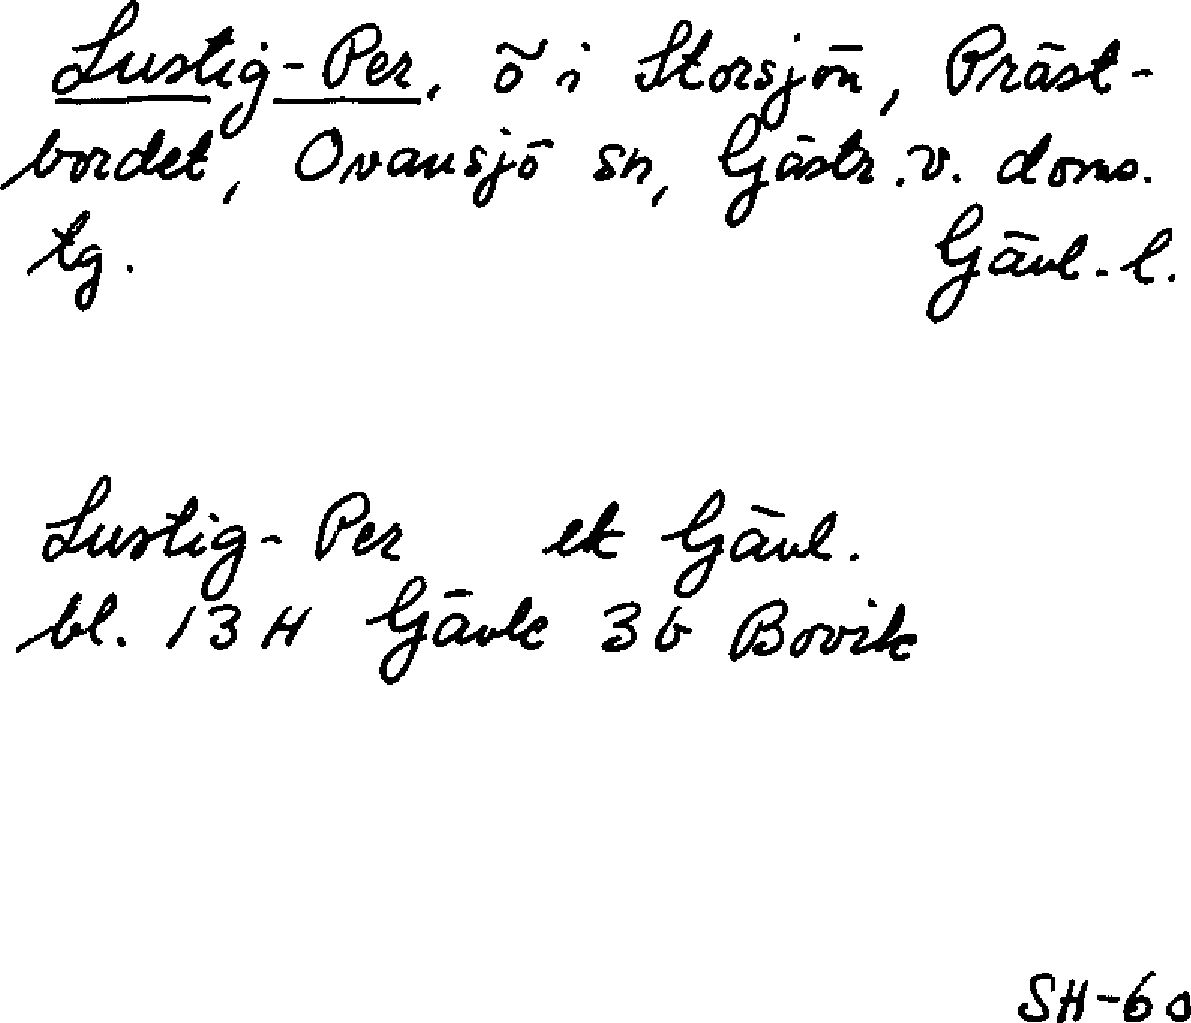 Lustig-Per, ö i Storsjön, Präst-
bordet, Ovansjö sn, Gästr. v. doms.
tg. Gävl. l.
Lustig-Per ek Gävl.
bl. 13 H Gävle 3 b Bovik
SH-60